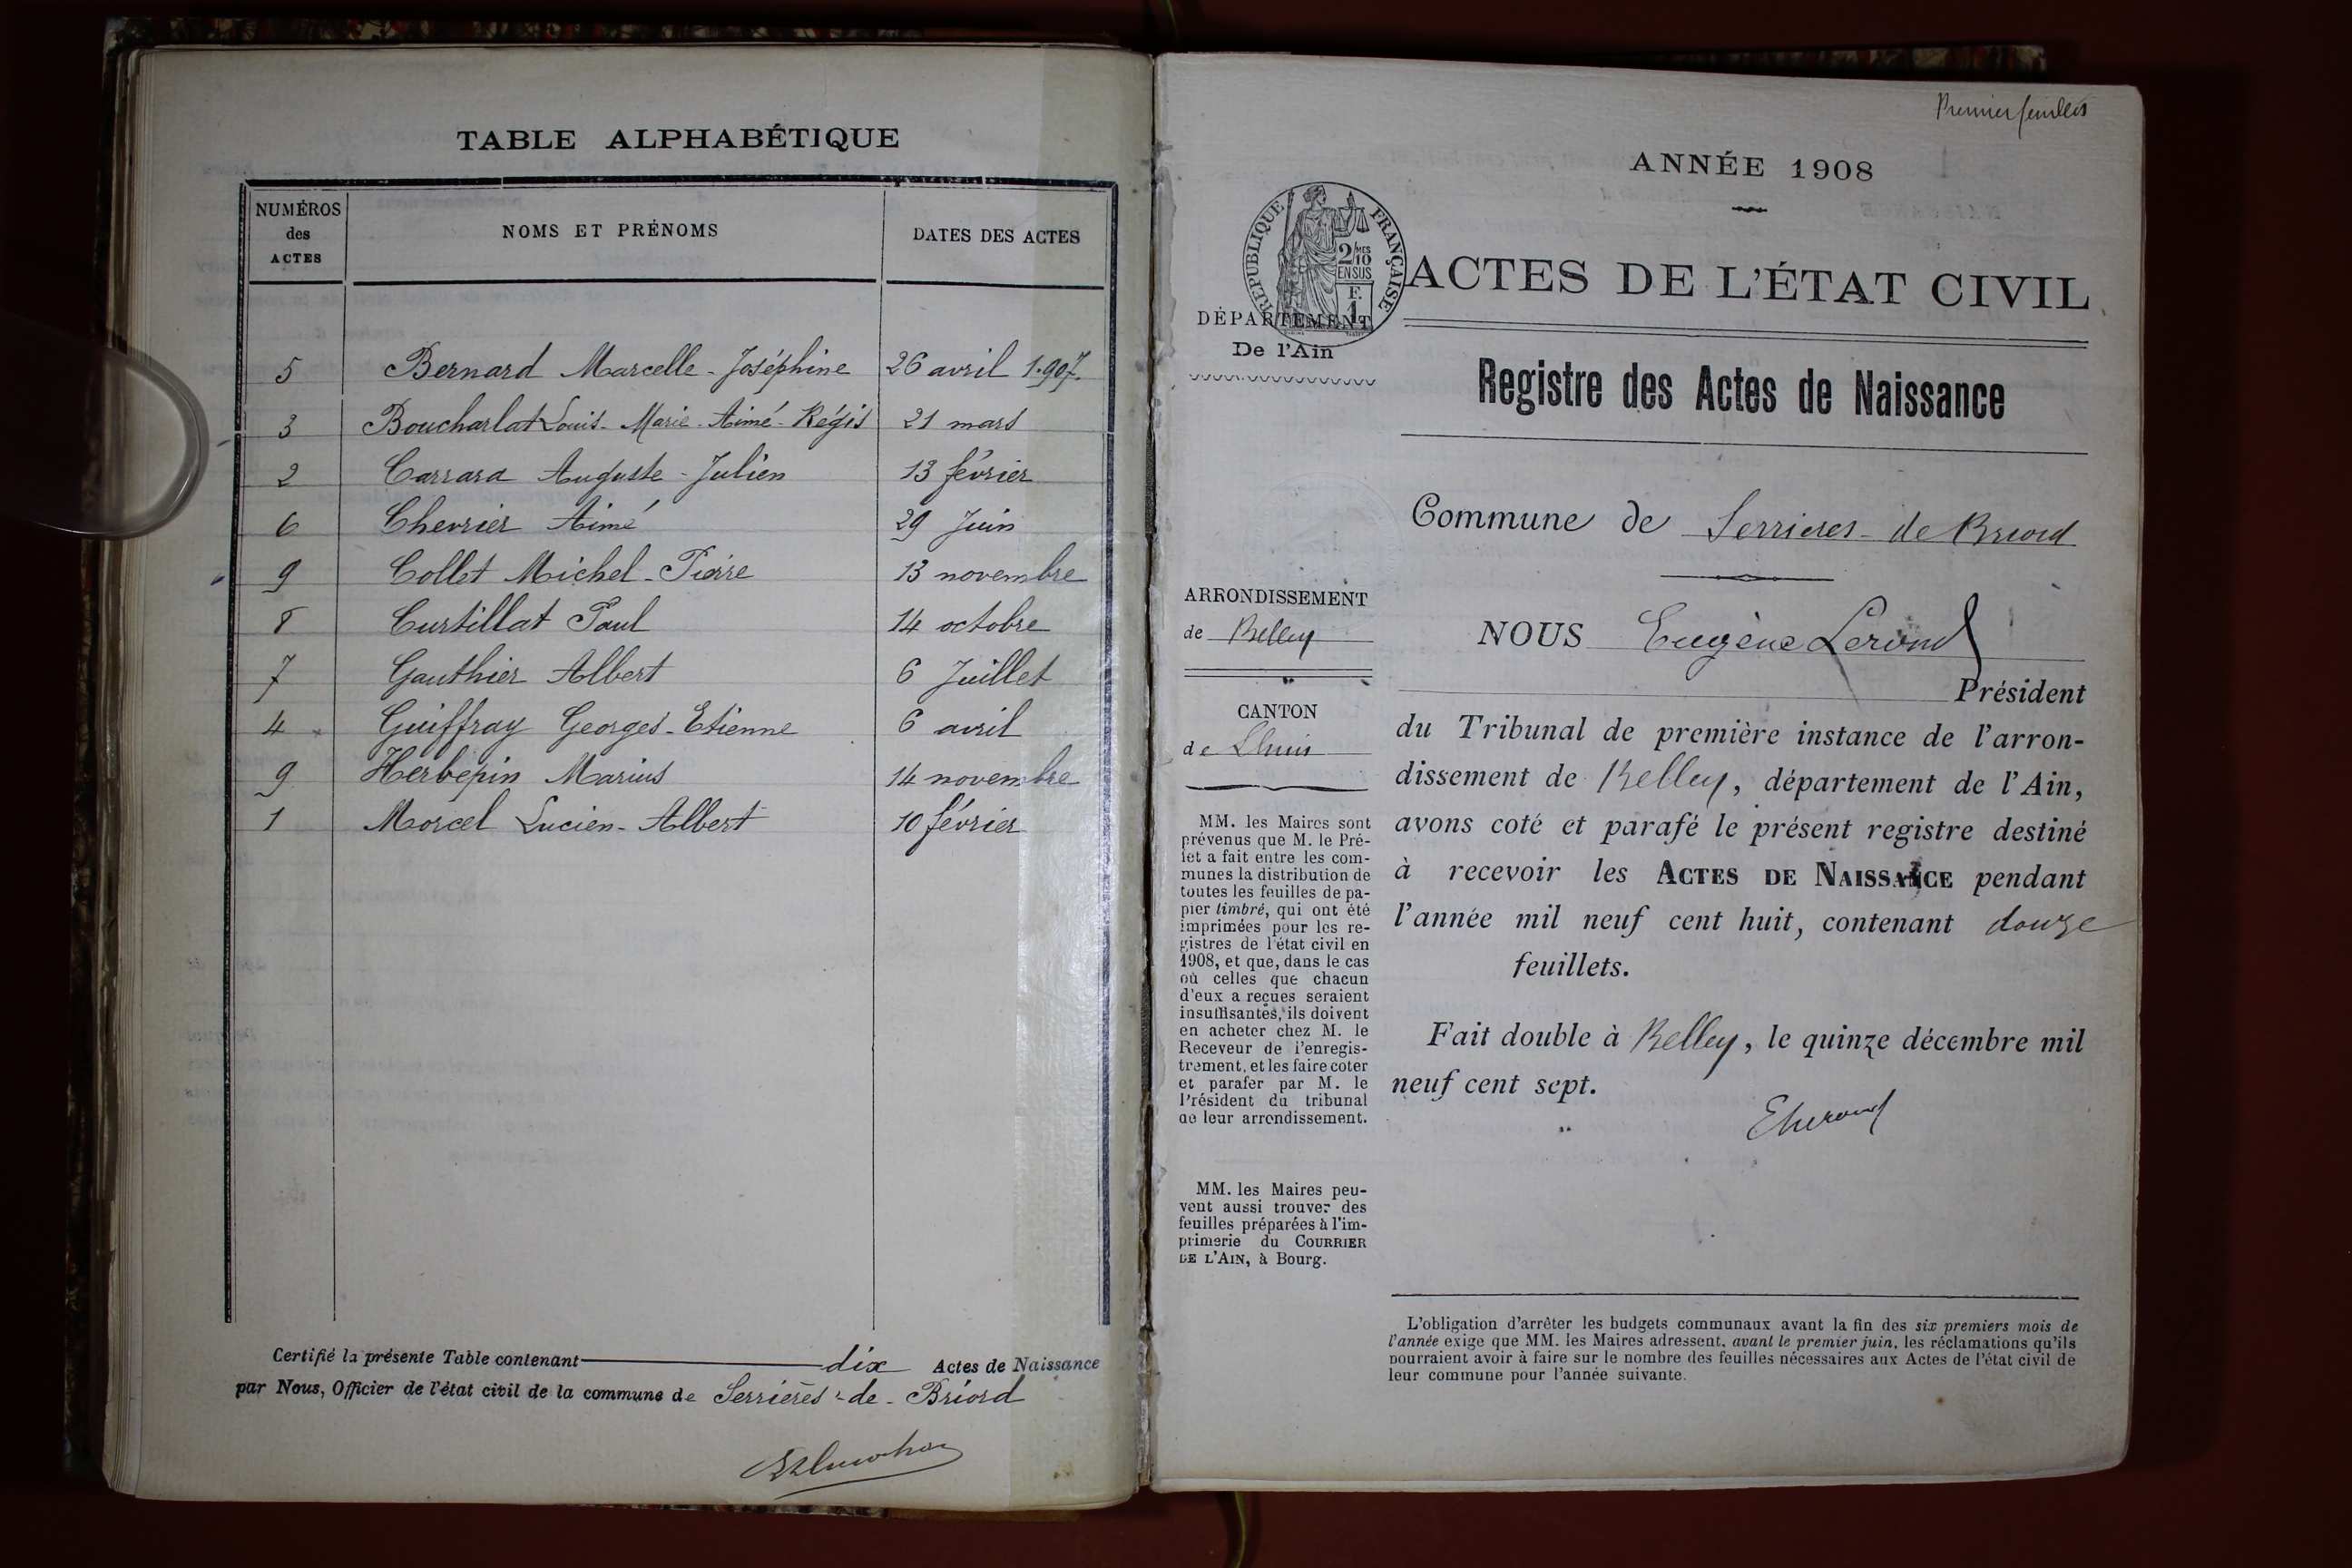 TABLE ALPHABÉTIQUE
NUMÉROS des ACTES NOMS ET PRÉNOMS DATES DES ACTES
5 Bernard Marcelle-Joséphine 26 avril 1.907.
3 Boucharlat Louis-Marie-Aimé-Régis 21 mars
2 Carrara Auguste-Julien 13 février
6 Chevrier Aimé 29 Juin
9 Collet Michel-Pierre 13 novembre
8 Curtillat Paul 14 octobre
7 Gauthier Albert 6 Juillet
4 Guiffray Georges-Etienne 6 avril
9 Herbepin Marius 14 novembre
1 Morcel Lucien-Albert 10 février
Certifié la présente Table contenant dix Actes de Naissance
par Nous, Officier de l'état civil de la commune de Serrières-de-Briord
Premier feuillet
ANNÉE 1908
RÉPUBLIQUE FRANÇAISE
2/10 MES
EN SUS
F.
1
ACTES DE L'ÉTAT CIVIL
DÉPARTEMENT
De l'Ain
Registre des Actes de Naissance
Commune de Serrieres-de Briord
ARRONDISSEMENT
de Belley
CANTON
de Lhuis
MM. les Maires sont
prévenus que M. le Pré-
fet a fait entre les com-
munes la distribution de
toutes les feuilles de pa-
pier timbré, qui ont été
imprimées pour les re-
gistres de l'état civil en
1908, et que, dans le cas
où celles que chacun
d'eux a reçues seraient
insuffisantes, ils doivent
en acheter chez M. le
Receveur de l'enregis-
trement, et les faire coter
et parafer par M. le
Président du tribunal
de leur arrondissement.
MM. les Maires peu-
vent aussi trouver des
feuilles préparées à l'im-
primerie du COURRIER
DE L'AIN, à Bourg.
NOUS Eugène
Président
du Tribunal de première instance de l'arron-
dissement de Belley, département de l'Ain,
avons coté et parafé le présent registre destiné
à recevoir les ACTES DE NAISSANCE pendant
l'année mil neuf cent huit, contenant douze
feuillets.
Fait double à Belley, le quinze décembre mil
neuf cent sept.
L'obligation d'arrêter les budgets communaux avant la fin des six premiers mois de
l'année exige que MM. les Maires adressent, avant le premier juin, les réclamations qu'ils
pourraient avoir à faire sur le nombre des feuilles nécessaires aux Actes de l'état civil de
leur commune pour l'année suivante.